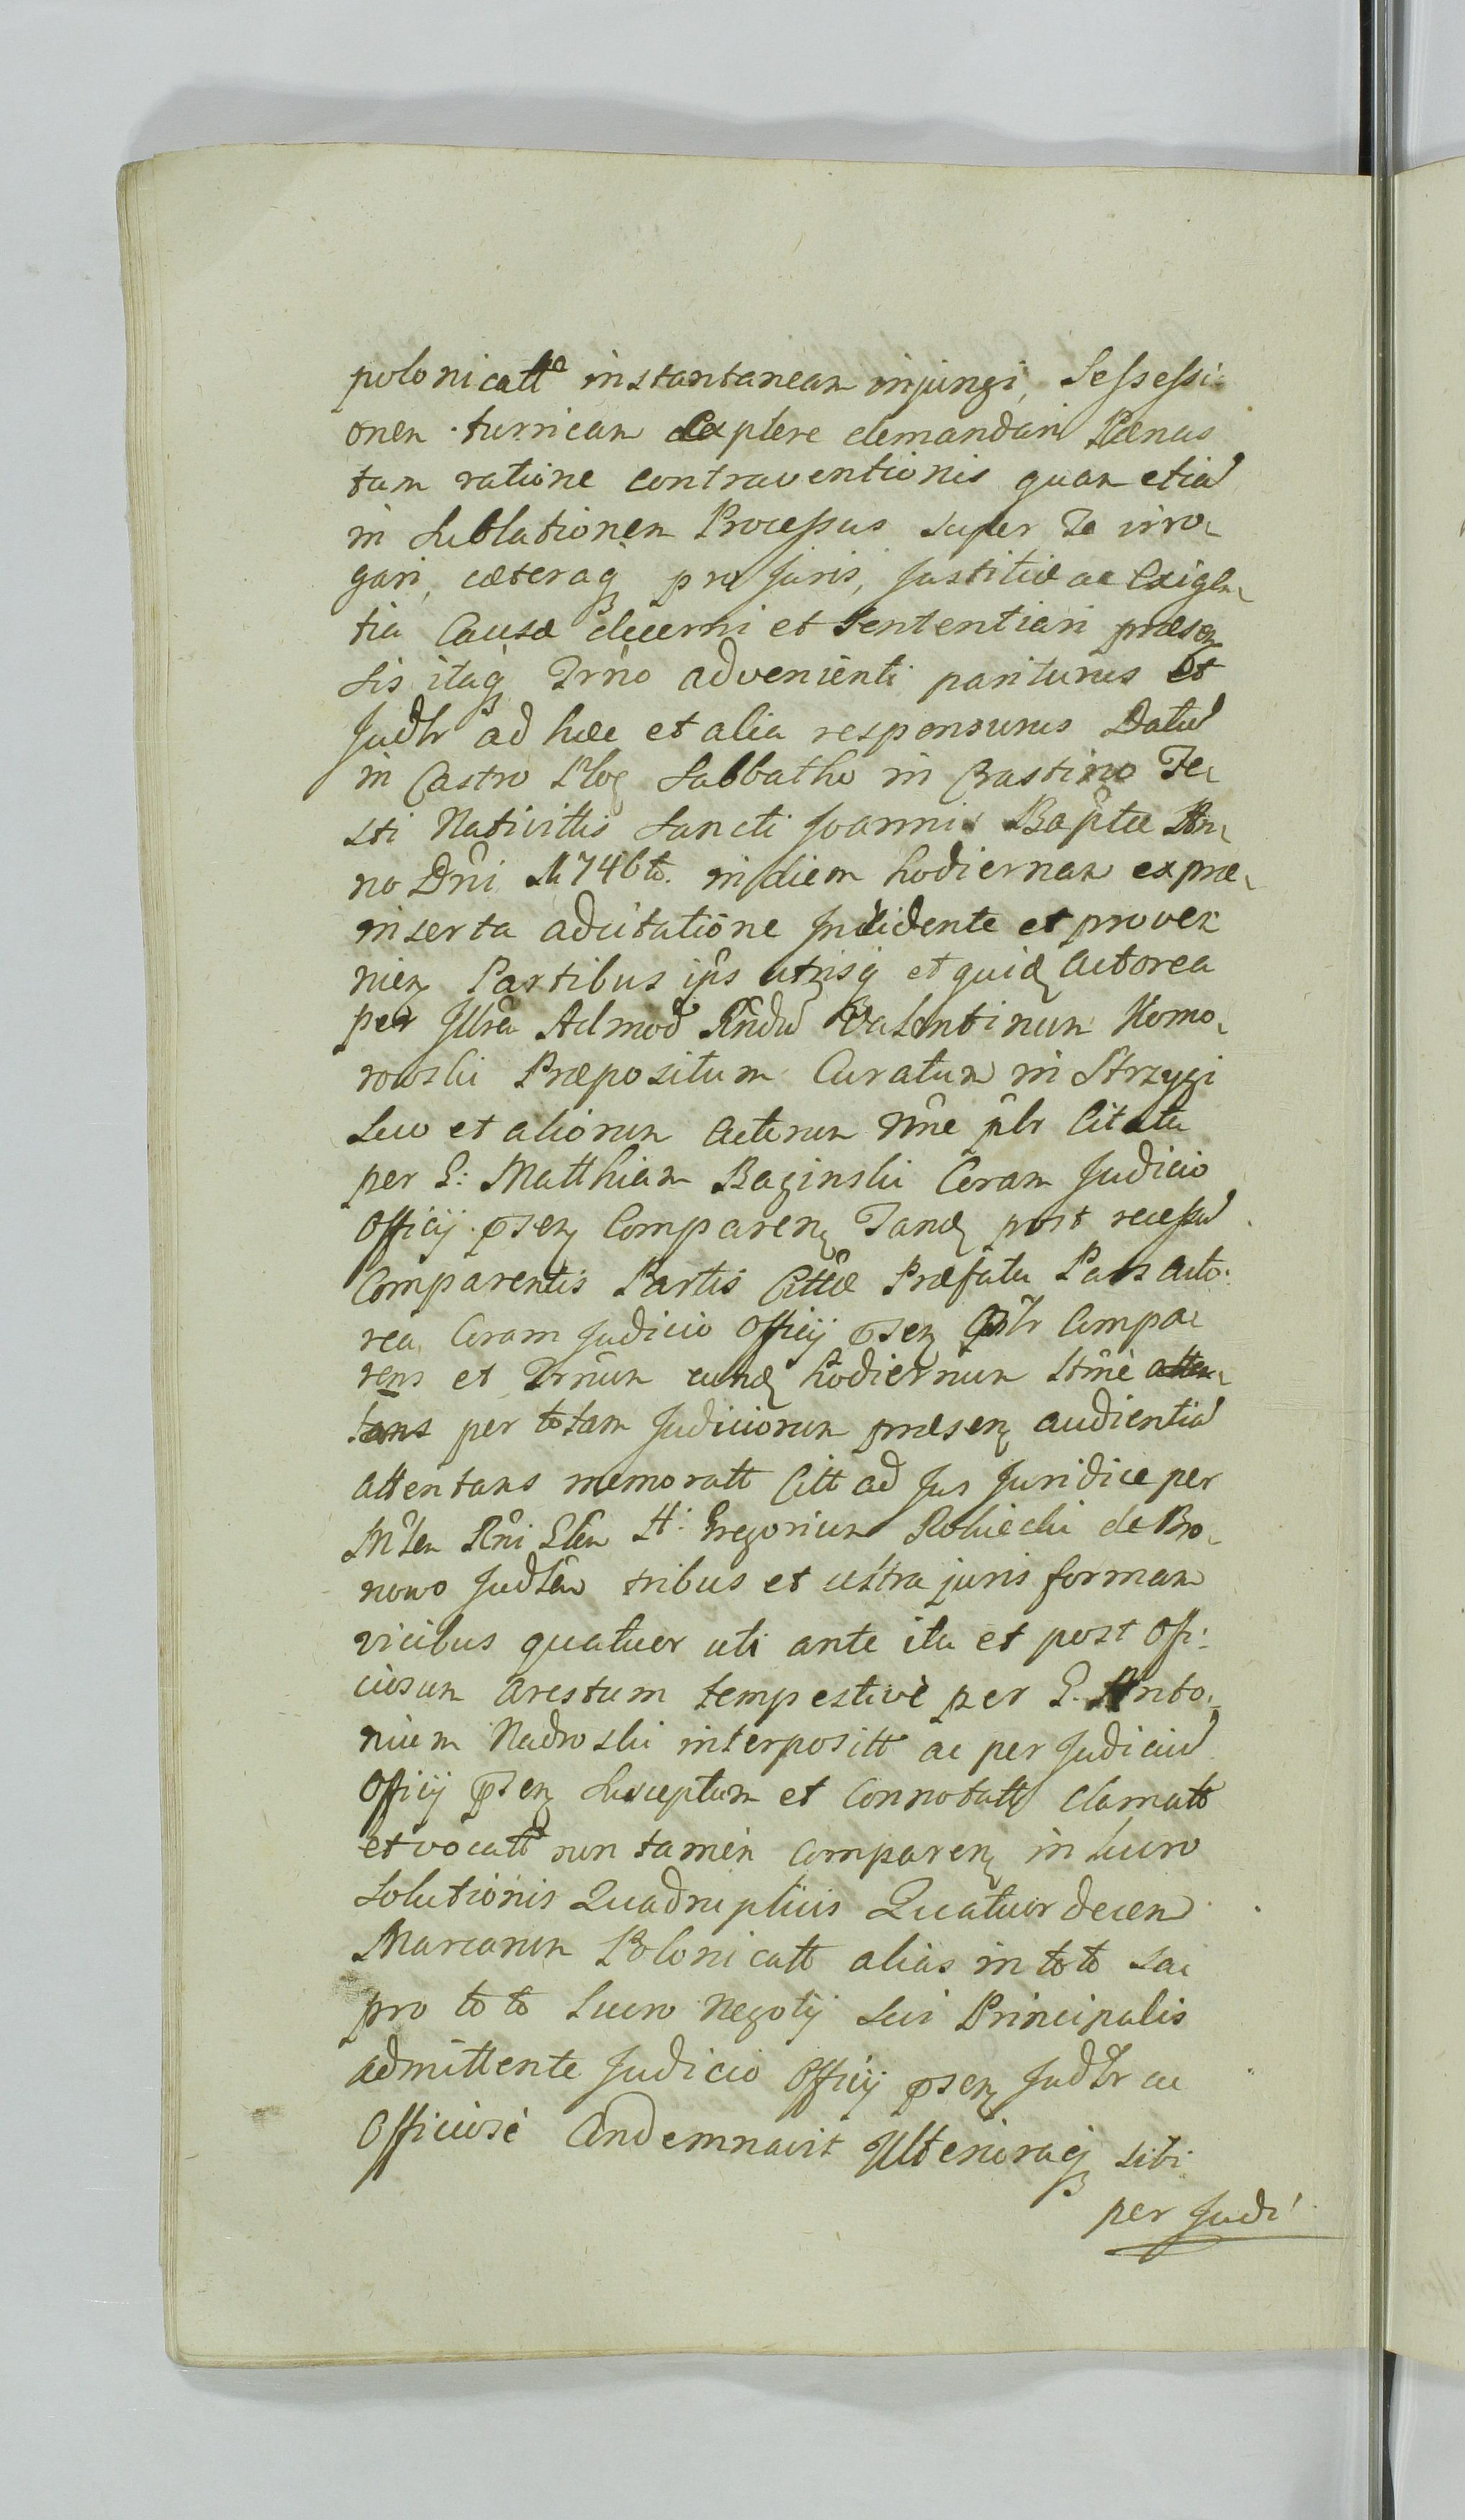 polonicatt instantaneam injungi, Sessessi-
onem turricam explere demandari Pænas
tam ratione contraventionis quam etiã
in Sublationem Processus super Te irro-
gari, cæteraq pro Juris, Justitiæ ac Exigen-
tia Causæ decerni et Sententiari præsen
sis itaq Trno advenienti pariturus et
Judlr ad hæc et alia responsurus Datũ
in Castro Sabbatho in Crastino Fe-
sti Nativittis Sancti Joannis Baptæ An-
no Dni M746to. in diem hodiernam ex præ-
inserta adcitatione Incidente et prove-
nien Partibus ips utrisq et quid Actorea
per Illrem Admod Rndũ Valentinum Komo-
rowski Præpositum Curatum in Strzygi
Suo et aliorum Actorum nne Citata
per G: Matthiam Baginski Coram Judicio
Officij psen Comparen Tand post recessũ
Comparentis Partis Cittæ Præfata Pars Acto-
rea, Coram Judicio Officij psen Compa-
rens et Trnum eund hodiernum
tans per totam Judiciorum præsen audientiã
attentans memoratt Citt ad Jus Juridice per
Mlem Rni H: Gregorium Robiecki de Bro-
nowo Judlem tribus et ultra juris formam
vicibus quatuor uti ante ita et post Offi-
ciosum Arestum tempestivè per G. Anto-
nium Nadroski interpositt ac per Judiciũ
Officij psen Susceptum et Connotatt Clamatt
et vocatt non tamen Comparen in Lucro
Solutionis Quadruplicis Quatuordecem
Marcarum Polonicatt alias in toto Sa
pro toto Lucro Negotij Sui Principalis
admittente Judicio Officij psen Judlr ac
Officiosè Condemnavit Ulterioraq sibi
per Judi